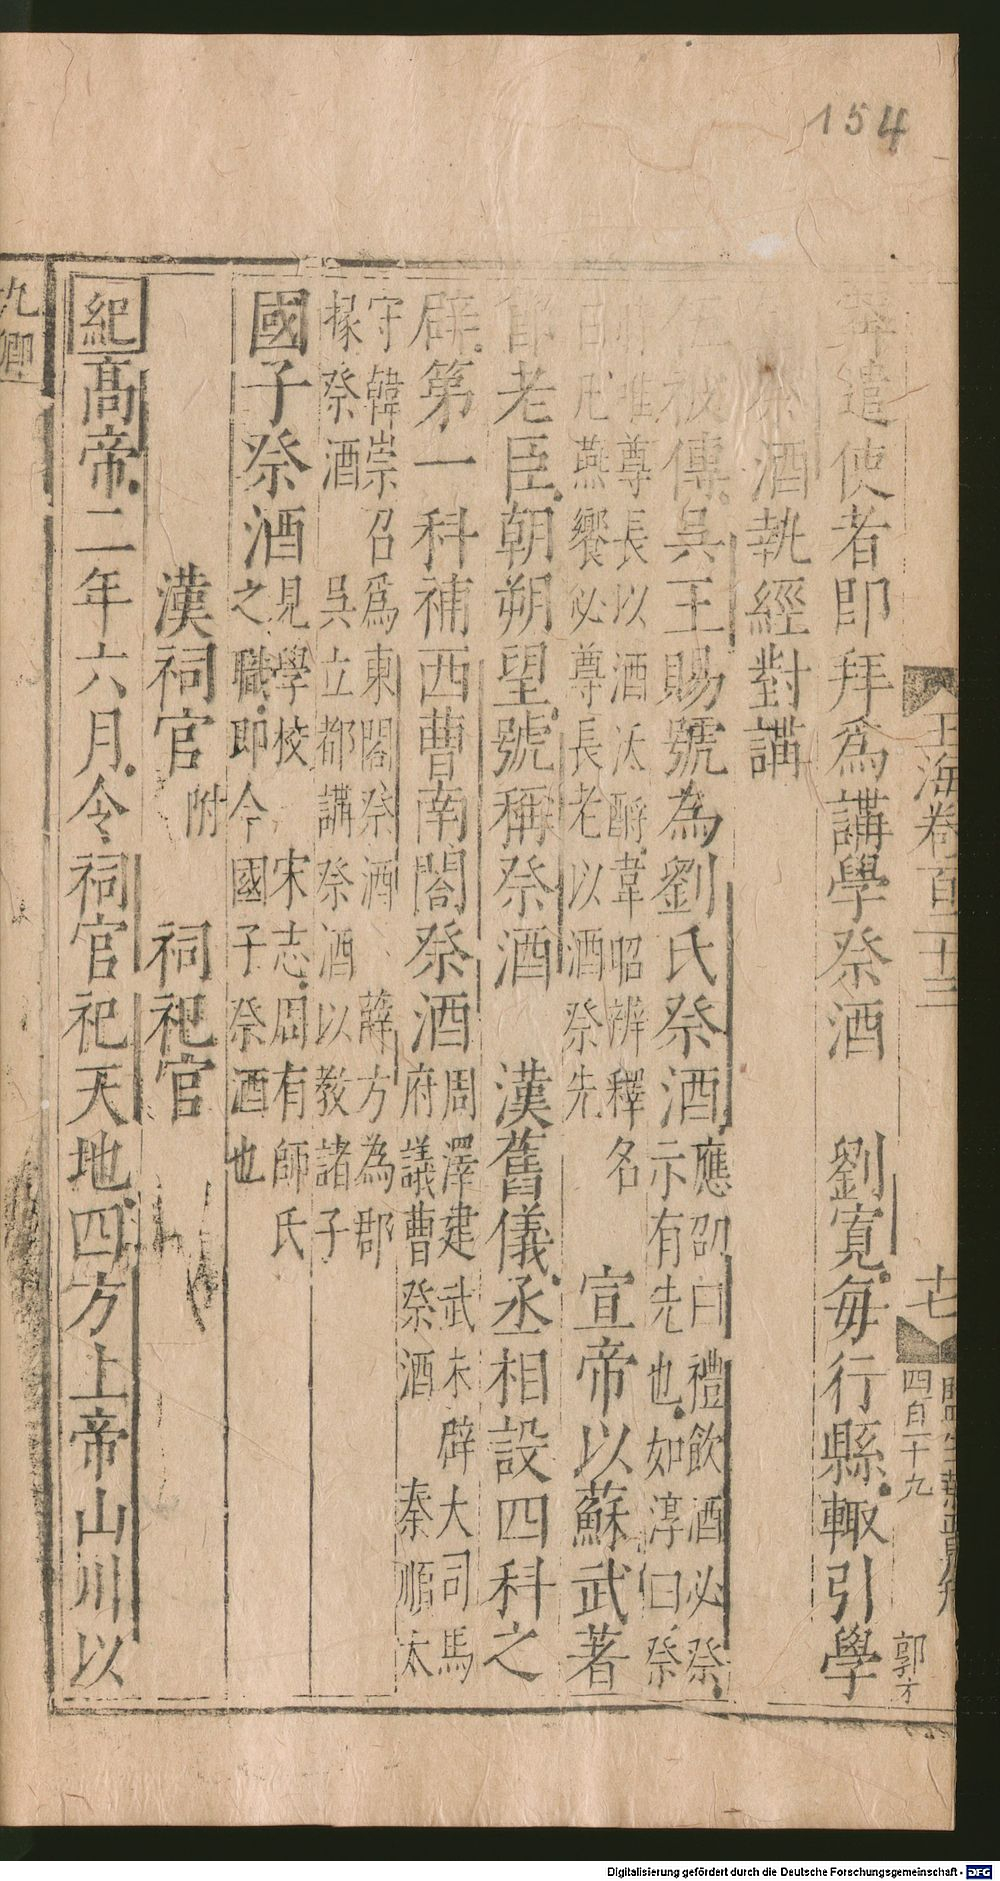 154
遣使者即拜爲講學祭酒　劉寬每行縣輙引學
祭酒執經對講
在祅傳吳王賜號為劉氏祭酒應劭曰禮飲酒必祭
示有先也如淳曰祭
唯尊長以酒汰酹韋昭辨釋名
曰凡燕饗必尊長老以酒祭先
宣帝以蘇武著
節老臣朝朔望號稱祭酒　漢舊儀丞相設四科之
辟第一科補西曹南閤祭酒周澤建武末辟大司馬
府議曹祭酒　秦順太
守韓崇召爲東閤祭酒　薛方為郡
掾祭酒　吳立都講祭酒以教諸子
國子祭酒見學校　宋志周有師氏
之職即今國子祭酒也
漢祠官附　祠祀官
紀高帝二年六月令祠官祀天地四方上帝山川以
九卿
玉海卷百二十三
十七
四百二十九
郭才
Digitalisierung gefördert durch die Deutsche Forschungsgemeinschaft - DFG